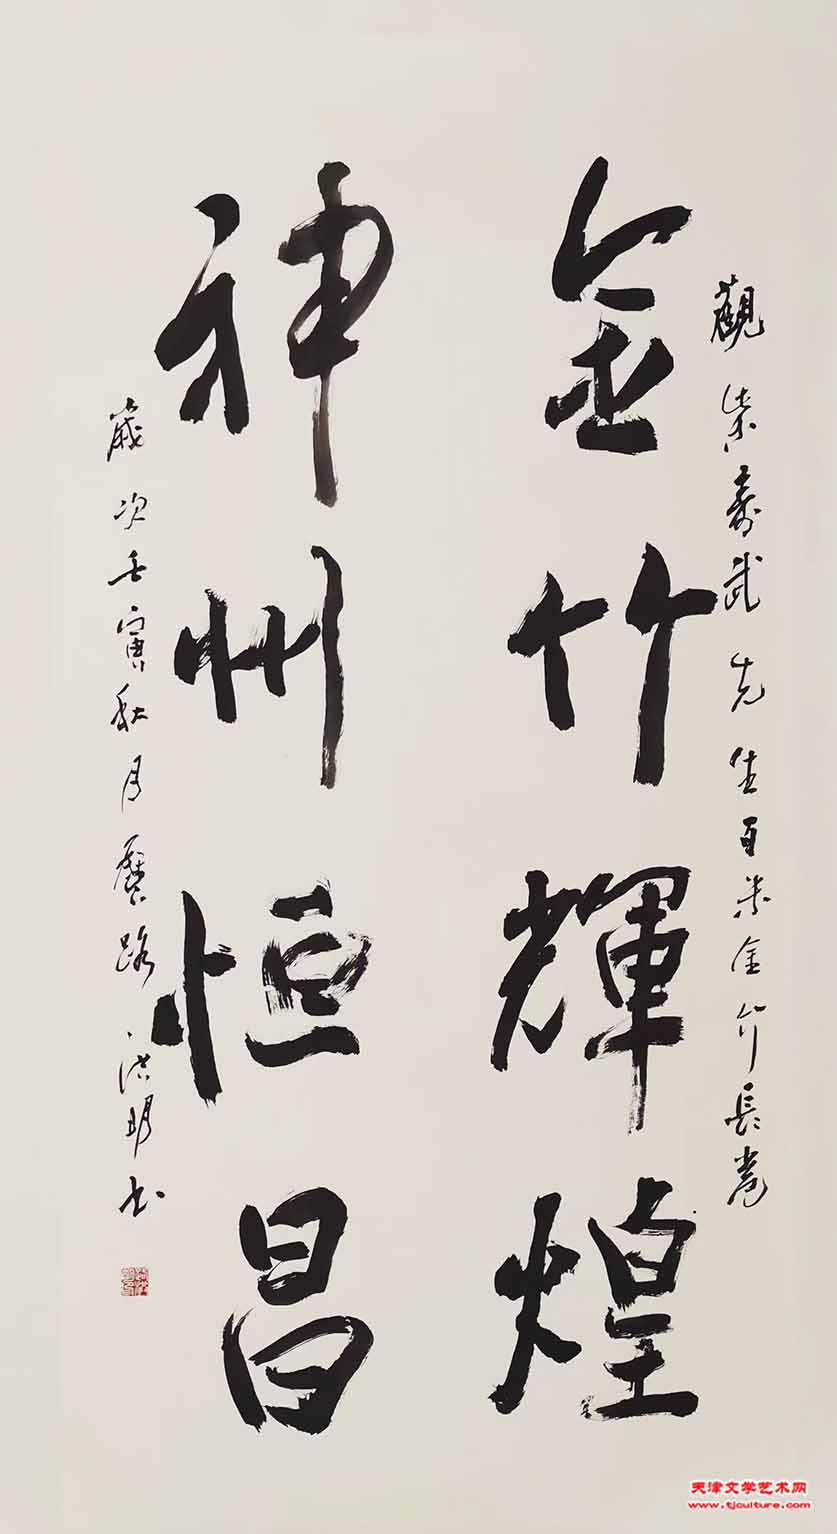 觀柴寿武先生百米金竹長卷
金竹輝煌
神州恒昌
歲次壬寅秋月賡路洪明书
天津文学艺术网
www.tjculture.com